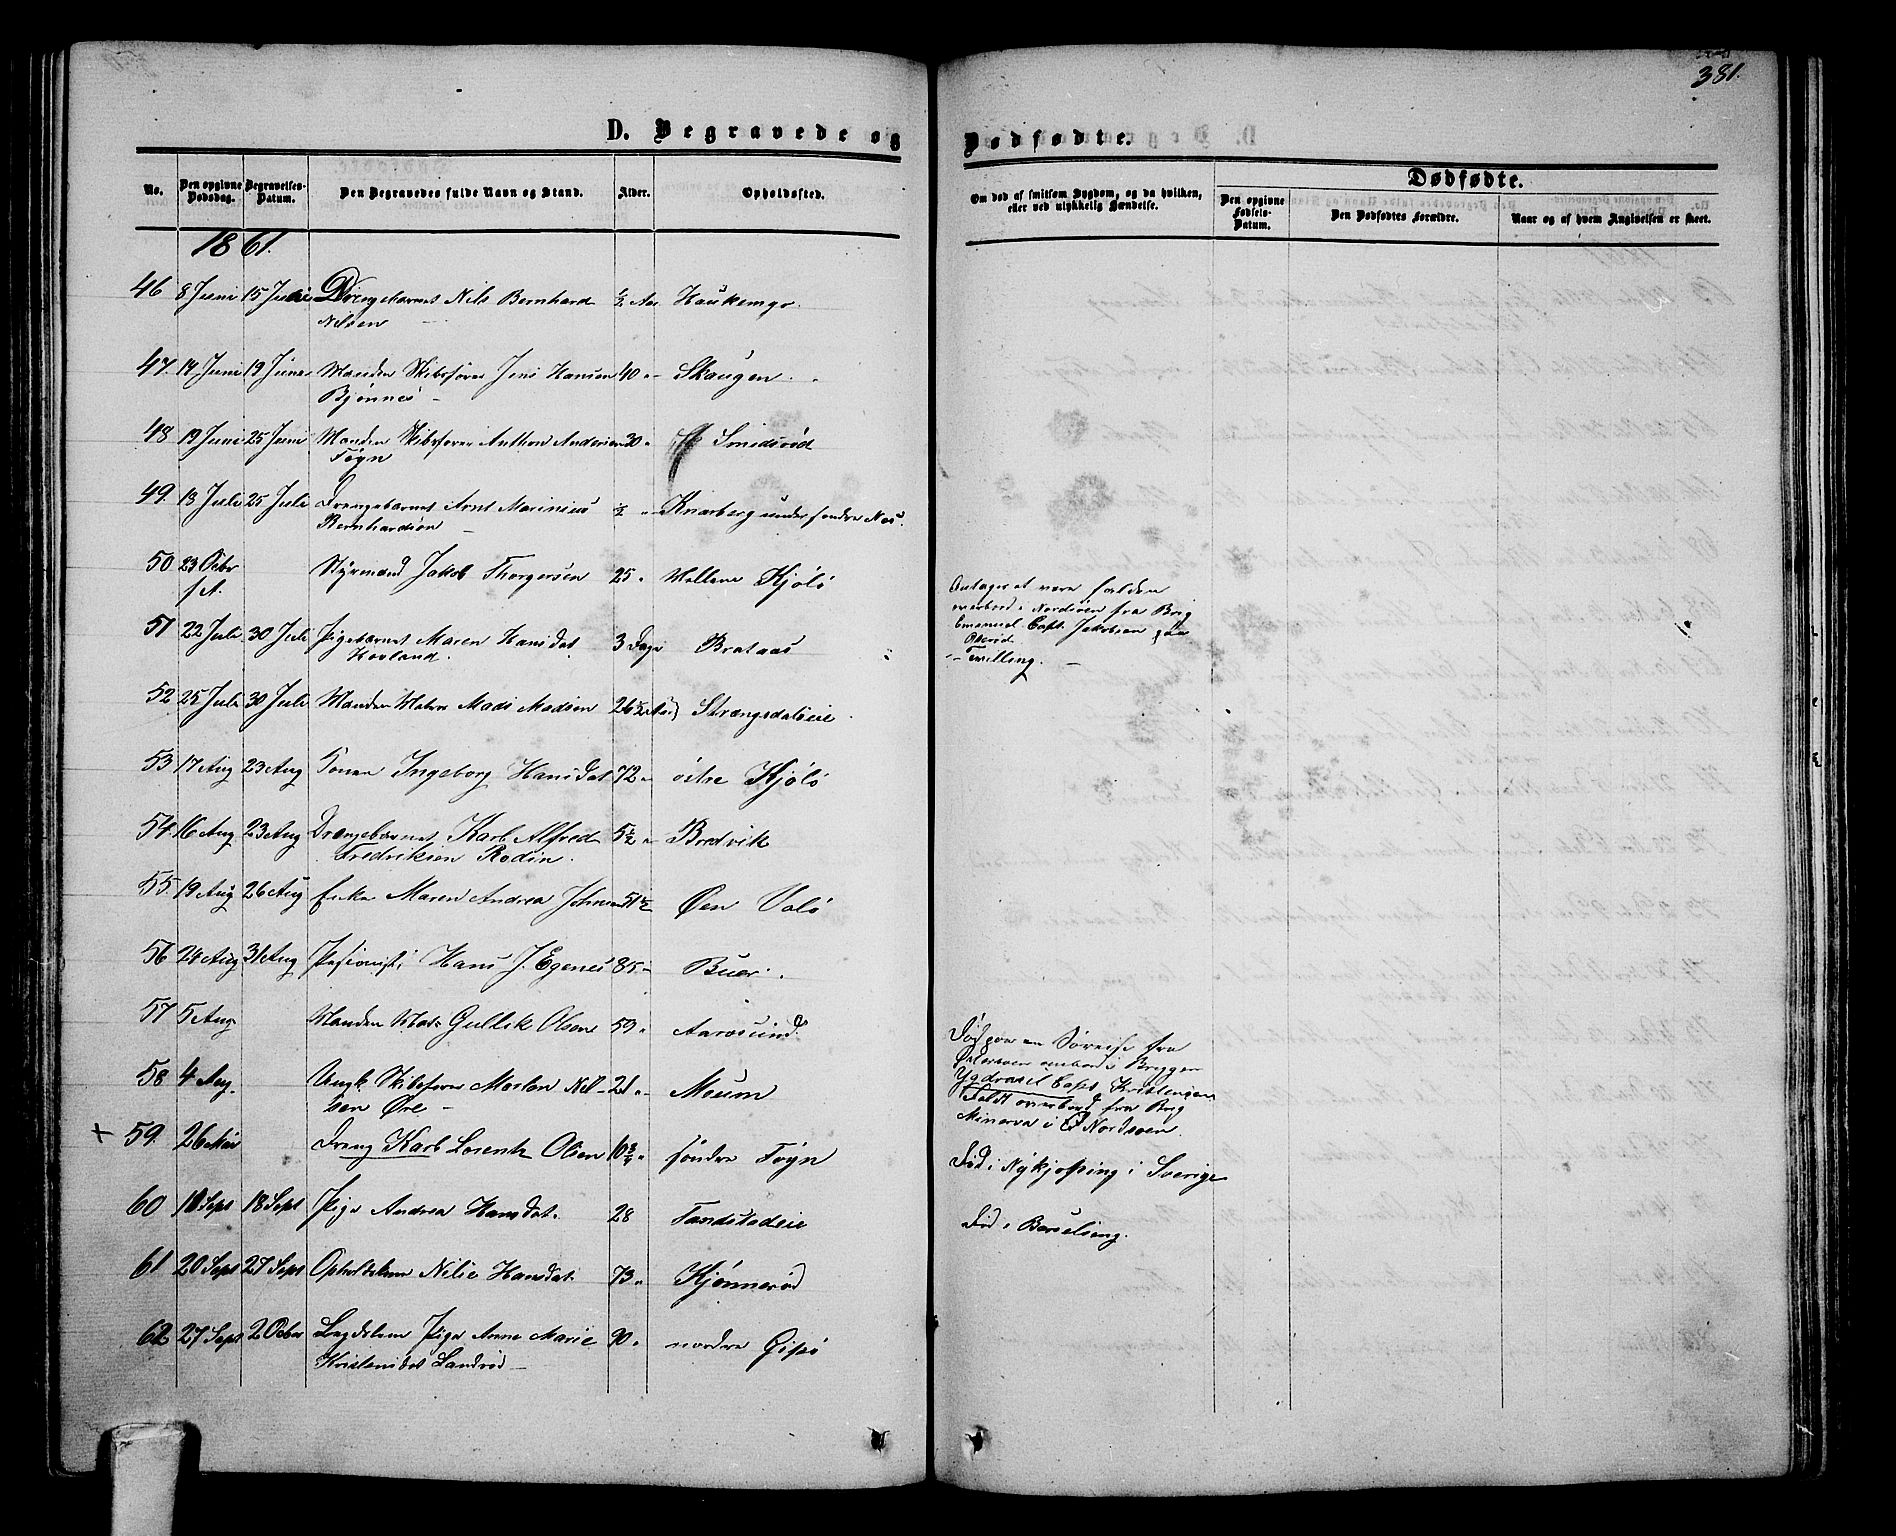 381.
D. Begravede og
Dødfødte.
No.
Den opgivne Dødsdag.
Begravelses-Datum.
Den Begravedes fulde Navn og Stand.
Alder.
Opholdssted.
Om død af smitsom Sygdom, og da hvilken, eller ved ulykkelig Hændelse.
Dødfødte.
Den opgivne Fødsels-Datum.
Den Dødfødtes Forældre.
Naar og af hvem Angivelsen er skeet.
1861.
46 8 Juni 15 Juni Drengebarnet Nils Bernhard ½ Aar Haukemyr
Nilsen —
47. 14 Juni 19 Juni Manden Skibsfører Jens Hansen 40 " Skaugen.
Bjønnes —
48 19 Juni 25 Juni Manden Skibsfører Anthon Andersen 30 " Smidsrød
Føyn
49. 18 Juli 25 Juli Drengebarnet Arnt Marinius ½ " Knarberg under søndre Nes.
Bernhardsen —
50 23 Octbr Styrmand Jakob Thorgersen 25 " Mellem Kjølø
f. A.
Antages at være falden
overbord i Nordsøen fra Brig
Emanuel Capt. Jakobsen paa
51 22 Juli 30 Juli Pigebarnet Maren Hansdat 3 Dage Brataas
Hovland.
Tvilling. —
52 25 Juli 30 Juli Manden Matros Mads Madsen 26½ Aar Strængsdaleie
53 17 Aug 23 Aug Konen Ingeborg Hansdat 72 " østre Kjølø
54. 16 Aug 23 Aug Drengebarnet Karl Alfred 5½ " Bredvik
Fredriksen Rodin.
55. 19 Aug 26 Aug Enke Maren Andrea Johnsen 51½ Øen Valø
56 24 Aug 31 Aug Hans J. Egenes 85 " Buer.
57 5 Aug Manden Mats Gullik Olsen 59 " Aarøsund
Død paa en Søreise fra
Østersøen ombord i Briggen
Ygdrasil Capt. Kristensen
58. 4 Aug. Ungk. Skibsfører Morten Nil- 21 " Moum
sen Øre —
Faldt overbord fra Brig
Minerva i Nordsøen.
+ 59. 26 Mai Dreng Karl Lorentz Olsen 10¾ " søndre Føyn
Død i Nykjøping i Sverige
60 10 Sept 18 Sept Pige Andrea Hansdat. 28 Tandstadeie
Død i Barselseng.
61 20 Sept 27 Sept Opholdskone Nilie Hansdat. 73 " Kjønnerød
62 27 Sept 2 Octbr Lægdslem Pige Anne Marie 90 " nordre Gipø
Kristensdat Sandrød —